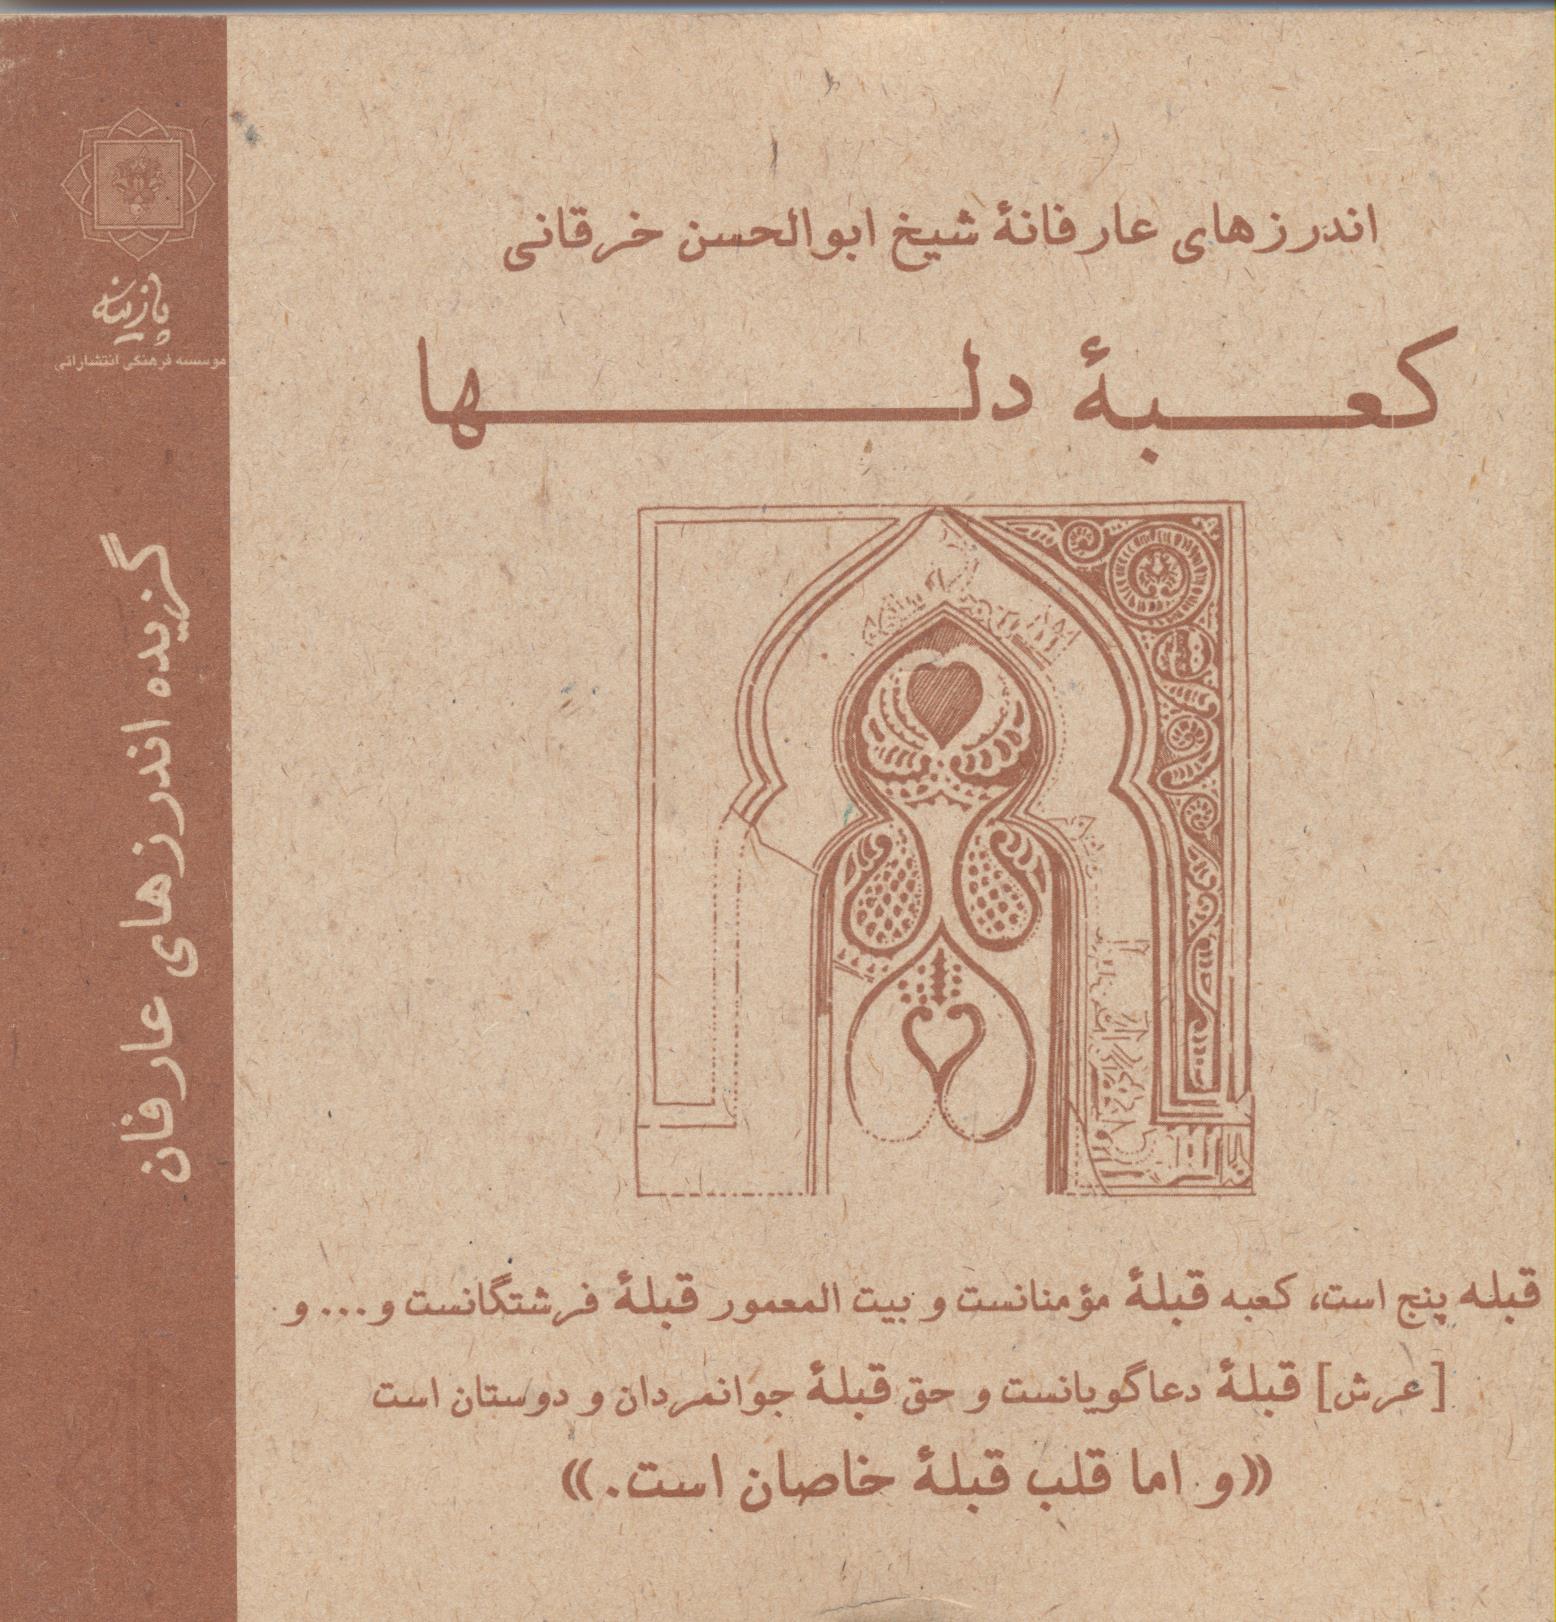 اندرزهای عارفانهٔ شیخ ابوالحسن خرقانی
کعبهٔ دلها
قبله پنج است، کعبه قبلهٔ مؤمنانست و بیت المعمور قبلهٔ فرشتگانست و... و
[عرش] قبلهٔ دعاگویانست و حق قبلهٔ جوانمردان و دوستان است
«و اما قلب قبلهٔ خاصان است.»
پازینه
موسسه فرهنگی انتشاراتی
گزیده اندرزهای عارفان